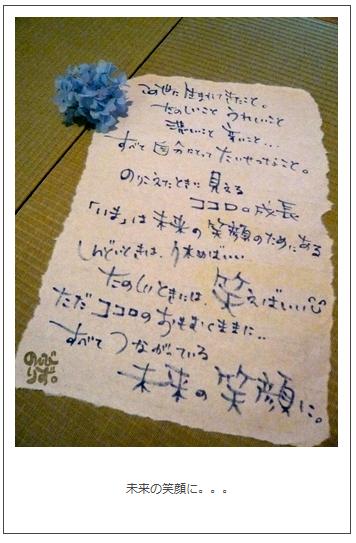 この世に生まれてきたこと。
たのしいこと うれしいこと
悲しいこと 辛いこと…
すべて自分にとって たいせつなこと。
のりこえたときに 見える
ココロの成長
「いま」は未来の笑顔のためにある
しんどいときは、休めばいい
たのしいときには、笑えばいい
ただココロのおもむくままに..
すべてつながっている
未来の笑顔に。
のび
りず。
未来の笑顔に。。。